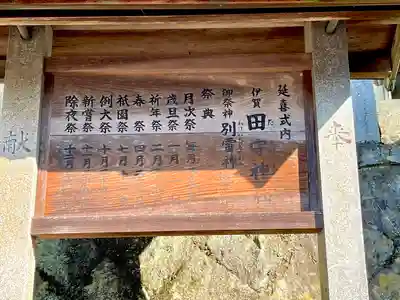 延喜式内
伊賀 田守神社
御祭神 別雷神
祭典
月次祭 毎月
歳旦祭 一月
祈年祭 二月
春祭 四月
祇園祭 七月
例大祭 十月
新嘗祭 十一月
除夜祭 十二月
奉
献